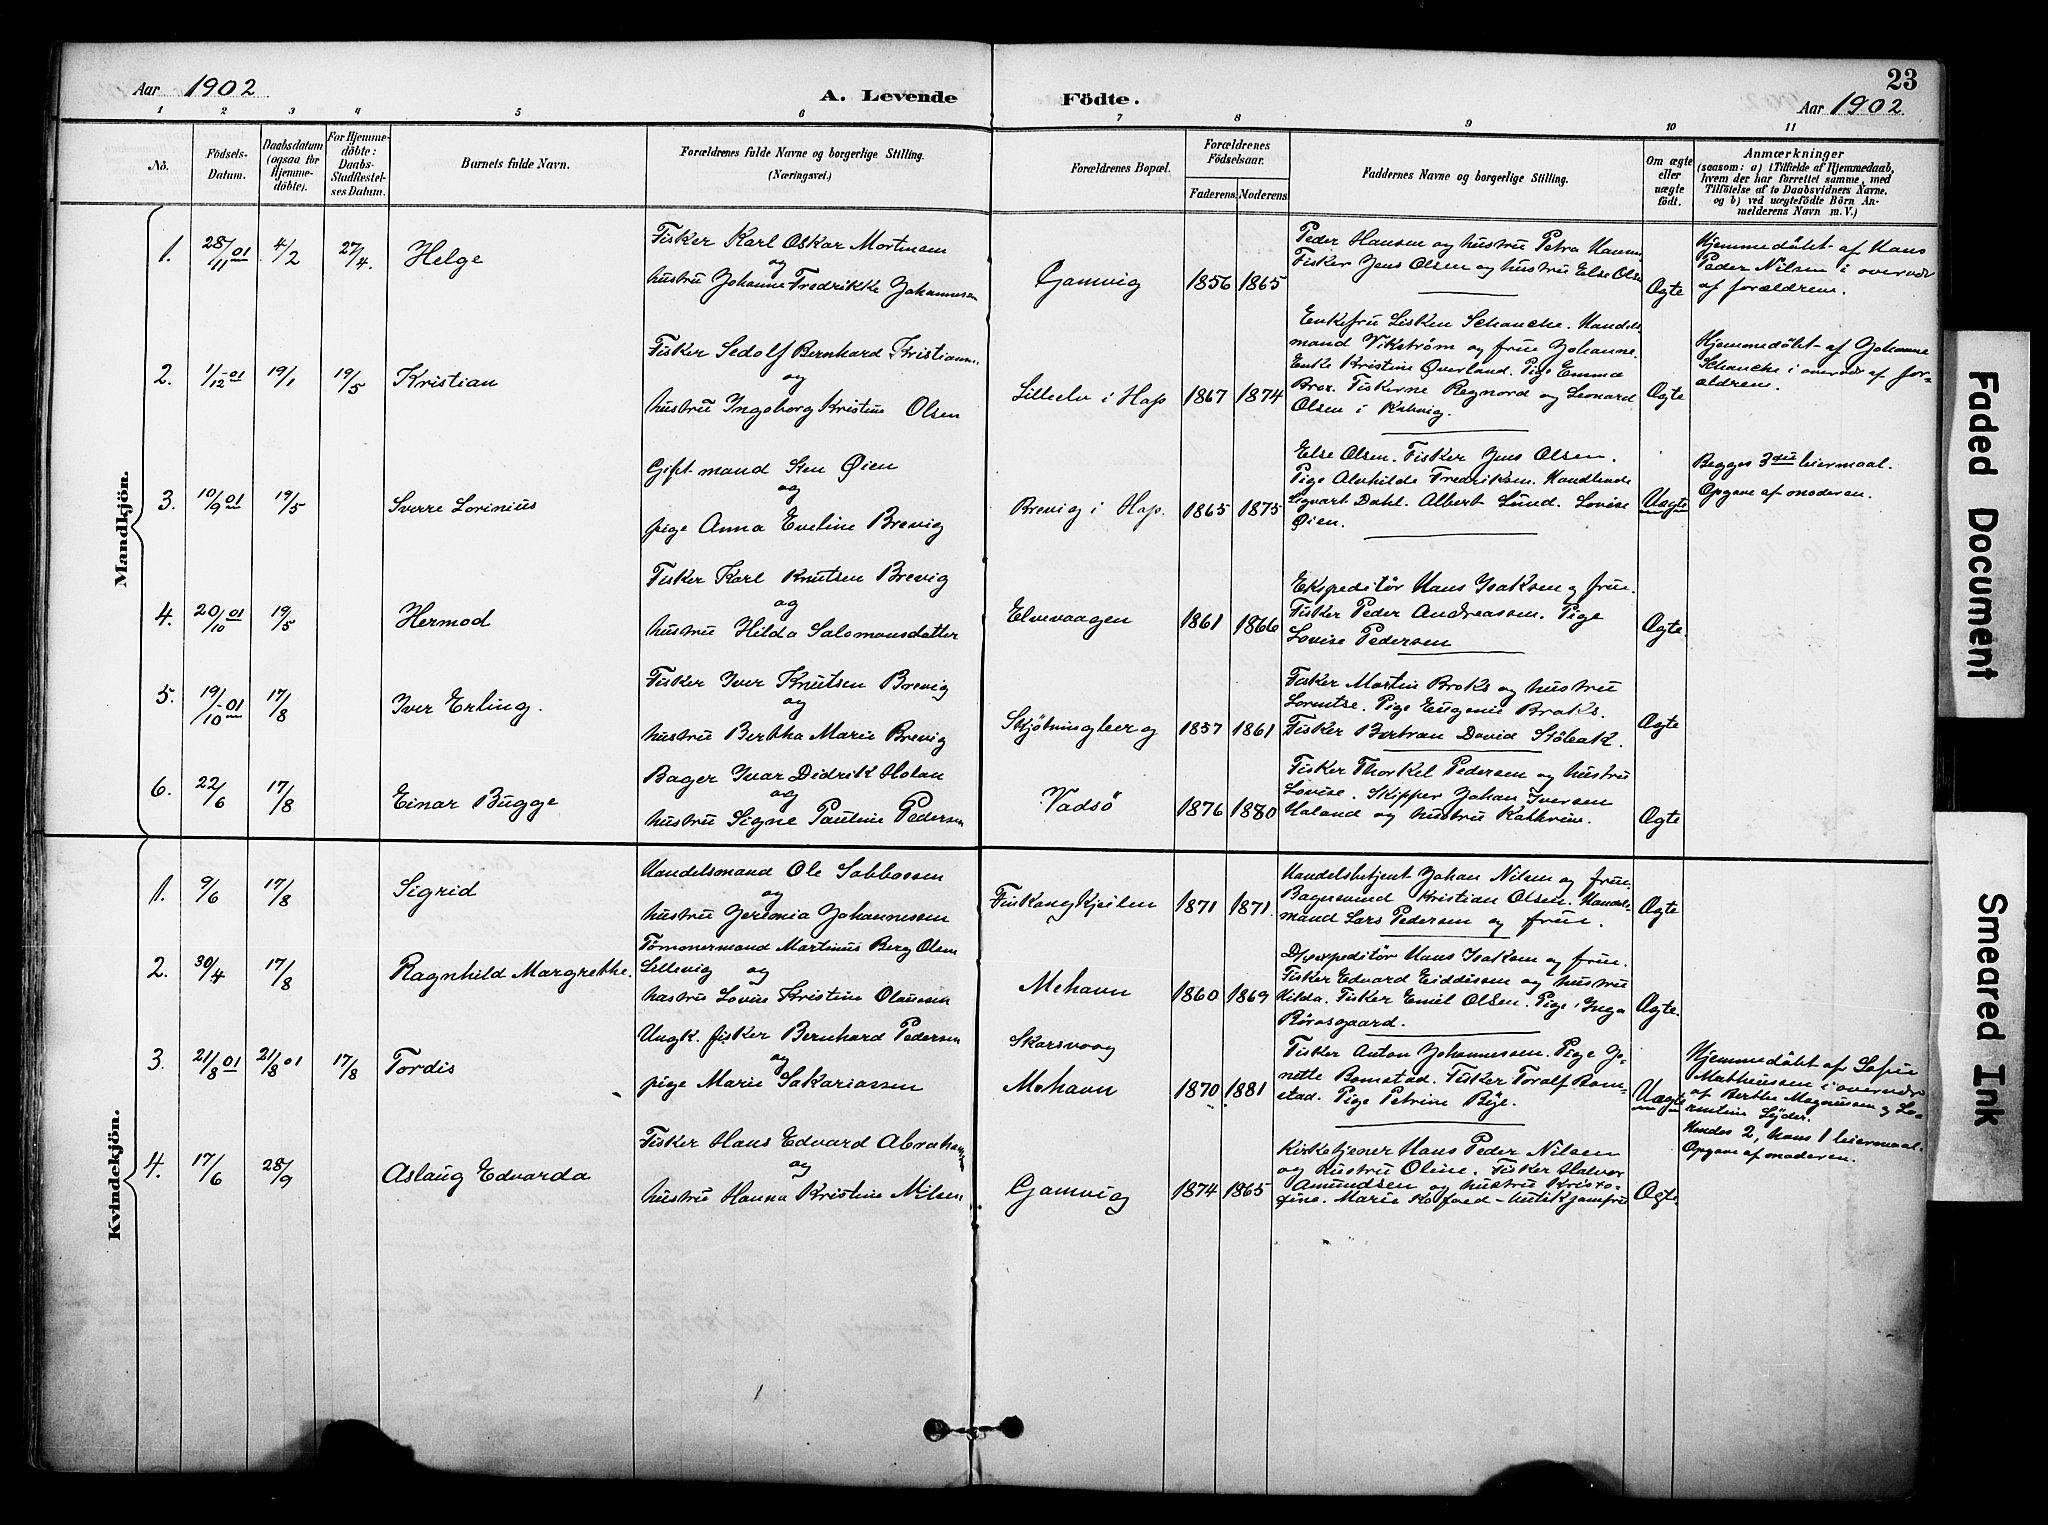 23
Aar 1902
A. Levende Födte.
Aar 1902
1 2 3 4 5 6 7 8 9 10 11
No.
Födsels-Datum.
Daabsdatum (ogsaa for Hjemmedöbte).
For Hjemmedöbte: Daabs-Stadfæstelses Datum.
Barnets fulde Navn.
Forældrenes fulde Navne og borgerlige Stilling.
(Næringsvei.)
Forældrenes Bopæl.
Forældrenes Födselsaar.
Faderens. Moderens.
Faddernes Navne og borgerlige Stilling.
Om ægte eller uægte födt.
Anmærkninger
(saasom: a) i Tilfælde af Hjemmedaab,
hvem der har forrettet samme, med
Tilföielse af to Daabsvidners Navne,
og b) ved uægtefödte Börn Anmelderens Navn m. V.)
Mandkjön.
1. 28/11 01 4/2 27/4. Helge
Fisker Karl Oskar Mortensen
og
hustru Johanne Fredrikke Johannesen
Gamvig 1856 1865
Peder Hansen og hustru Petra Hansen
Fisker Jens Olsen og hustru Else Olsen
Ægte
Hjemmedøbt af Hans
Peder Nilsen i overvær
af forældrene.
2. 1/12-01 19/1 19/5 Kristian
Fisker Sedolf Bernhard Kristiansen
og
hustru Ingeborg Kristine Olsen
Lilleelv i Hop 1867 1874
Enkefru Lisken Schanche. Handels-
mand Vikstrøm og frue Johanne.
Enke Kristine Øverland. Pige Emma
Brox. Fiskerne Regnord og Leonard
Olsen i Kalvig.
Ægte
Hjemmedøbt af Johanne
Schanche i overvær af for-
ældrene.
3. 10/9 01 19/5 Sverre Lorinius
Gift mand Sten Øien
og
pige Anna Eveline Brevig
Brevig i Hop. 1865 1875
Else Olsen. Fisker Jens Olsen.
Pige Alvhilde Fredriksen. Handlende
Sigvart Dahl. Albert Lund. Lovise
Øien.
Uægte
Begges 3die leiermaal.
Opgave af moderen.
4. 20/10 01 19/5 Hermod
Fisker Karl Knutsen Brevig
og
hustru Hilda Salomonsdatter
Elvevaagen 1861 1866
Ekspeditør Hans Isaksen og frue.
Fisker Peder Andreassen. Pige
Lovise Pedersen
Ægte.
5. 19/10-01 17/8 Iver Erling.
Fisker Iver Knutsen Brevig
og
hustru Bertha Marie Brevig
Skjøtningberg 1857 1861
Fisker Martin Broks og hustru
Lorentse. Pige Eugenie Broks.
Fisker Bertran David Støbak.
Ægte
6. 22/6 17/8 Einar Bugge
Bager Ivar Didrik Holan
og
hustru Signe Pauline Pedersen
Vadsö 1876 1880
Fisker Thorkel Pedersen og hustru
Lovise. Skipper Johan Iversen
Haland og hustru Kathrine.
Ægte
Kvindekjön.
1. 9/6 17/8 Sigrid
Handelsmand Ole Sabbasen
og
hustru Jeremia Johannesen
Finkongkjeilen 1871 1871.
Handelsbetjent Johan Nilsen og frue.
Bagersvend Kristian Olsen. Handels-
mand Lars Pedersen og frue.
Ægte
2. 30/4 17/8 Ragnhild Margrethe.
Tømmermand Martinus Berg Olsen
Lillevig og
hustru Lovise Kristine Olaussen
Mehavn 1860 1869
Ekspeditør Hans Isaksen og frue.
Fisker Edvard Eiddissen og hustru
Hilda. Fisker Emil Olsen. Pige Inga
Rørosgaard.
Ægte.
3. 21/8 01 21/8 01 17/8 Tordis
Ungk. fisker Bernhard Pedersen
og
pige Marie Sakariassen
Skarsvaag
Mehavn 1870 1881
Fisker Anton Johannessen. Pige Jo-
nette Bomstad. Fisker Toralf Bom-
stad. Pige Petrine Bye.
Uægte
Hjemmedøbt af Sofie
Mathisen i overvær
af Berthe Magnussen og Lo-
rentine Lyder.
Hendes 2, hans 1 leiermaal.
Opgave af moderen.
4. 17/6 28/9 Aslaug Edvarda
Fisker Hans Edvard Abrahamsen
og
hustru Hanna Kristine Nilsen
Gamvig 1874 1865
Kirketjener Hans Peder Nilsen
og hustru Oline. Fisker Halvor
Amundsen og hustru Kristo-
fine. Marie Kofoed - butikjomfru
Ægte.
Faded Document
Smeared Ink